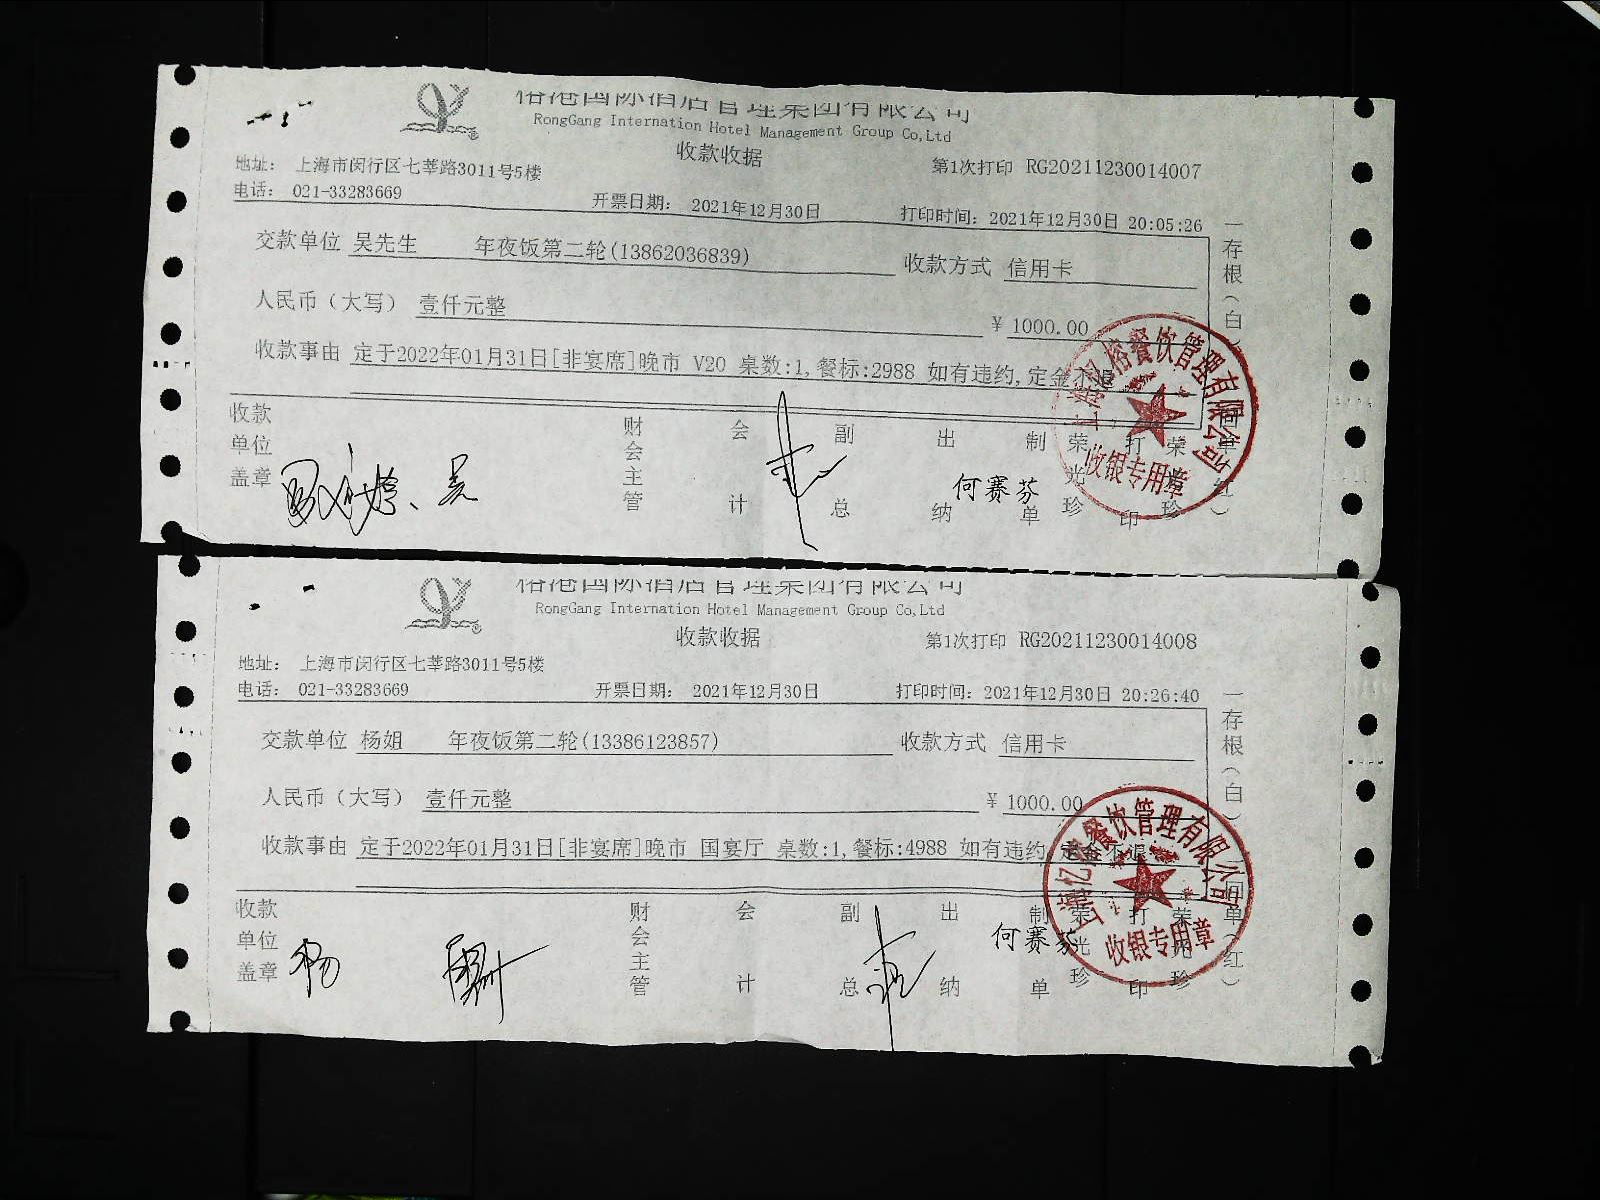 榕港国际酒店管理集团有限公司
RongGang Internation Hotel Management Group Co,Ltd
收款收据
第1次打印 RG20211230014007
地址： 上海市闵行区七莘路3011号5楼
电话： 021-33283669
开票日期： 2021年12月30日
打印时间：2021年12月30日 20:05:26
交款单位 吴先生 年夜饭第二轮(13862036839) 收款方式 信用卡
人民币（大写） 壹仟元整 ¥ 1000.00
收款事由 定于2022年01月31日[非宴席]晚市 V20 桌数:1,餐标:2988 如有违约,定金不退
收款单位盖章 吴
财会主管
会计
副总
出纳 何赛芬
制单 荣光珍
打印 荣光珍
一存根（白）
回单（红）
餐饮管理有限公司
收银专用章
榕港国际酒店管理集团有限公司
RongGang Internation Hotel Management Group Co,Ltd
收款收据
第1次打印 RG20211230014008
地址： 上海市闵行区七莘路3011号5楼
电话： 021-33283669
开票日期： 2021年12月30日
打印时间：2021年12月30日 20:26:40
交款单位 杨姐 年夜饭第二轮(13386123857) 收款方式 信用卡
人民币（大写） 壹仟元整 ¥ 1000.00
收款事由 定于2022年01月31日[非宴席]晚市 国宴厅 桌数:1,餐标:4988 如有违约,定金不退
收款单位盖章 杨
财会主管
会计
副总
出纳 何赛芬
制单 荣光珍
打印 荣光珍
一存根（白）
回单（红）
上海亿榕餐饮管理有限公司
收银专用章